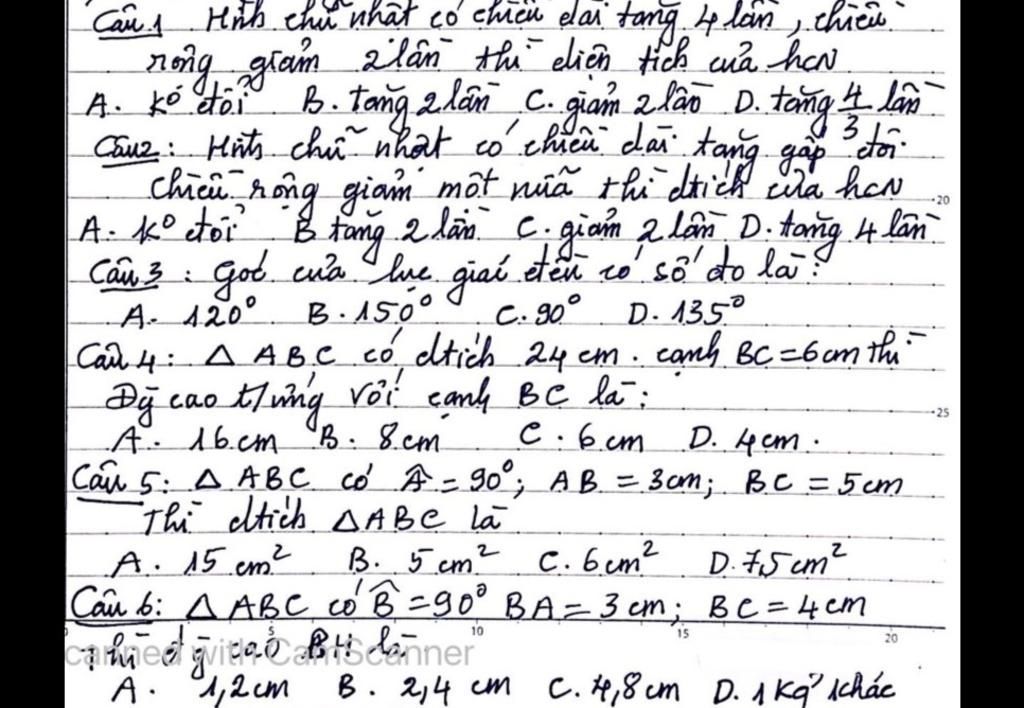 Câu 1 Hình chữ nhật có chiều dài tăng 4 lần, chiều
rộng giảm 2 lần thì diện tích của hcn
A. k° đổi B. tăng 2 lần C. giảm 2 lần D. tăng 4/3 lần
Câu 2: Hình chữ nhật có chiều dài tăng gấp đôi
chiều rộng giảm một nửa thì dtích của hcn
A. k° đổi B tăng 2 lần C. giảm 2 lần D. tăng 4 lần
Câu 3: Góc của lục giác đều có số đo là:
A. 120° B. 150° C. 90° D. 135°
Câu 4: △ ABC có dtích 24 cm. cạnh BC = 6cm thì
Đg cao t/ứng với cạnh BC là:
A. 16 cm B. 8cm C. 6 cm D. 4cm.
Câu 5: △ ABC có Â = 90°; AB = 3cm; BC = 5cm
Thì dtích △ABC là
A. 15 cm² B. 5 cm² C. 6cm² D. 7,5 cm²
Câu 6: △ ABC có B̂ = 90° BA = 3 cm; BC = 4cm
Thì đg cao BH là
canned with CamScanner
A. 1,2cm B. 2,4 cm C. 4,8cm D. 1 kq' khác
20
25
5 10 15 20